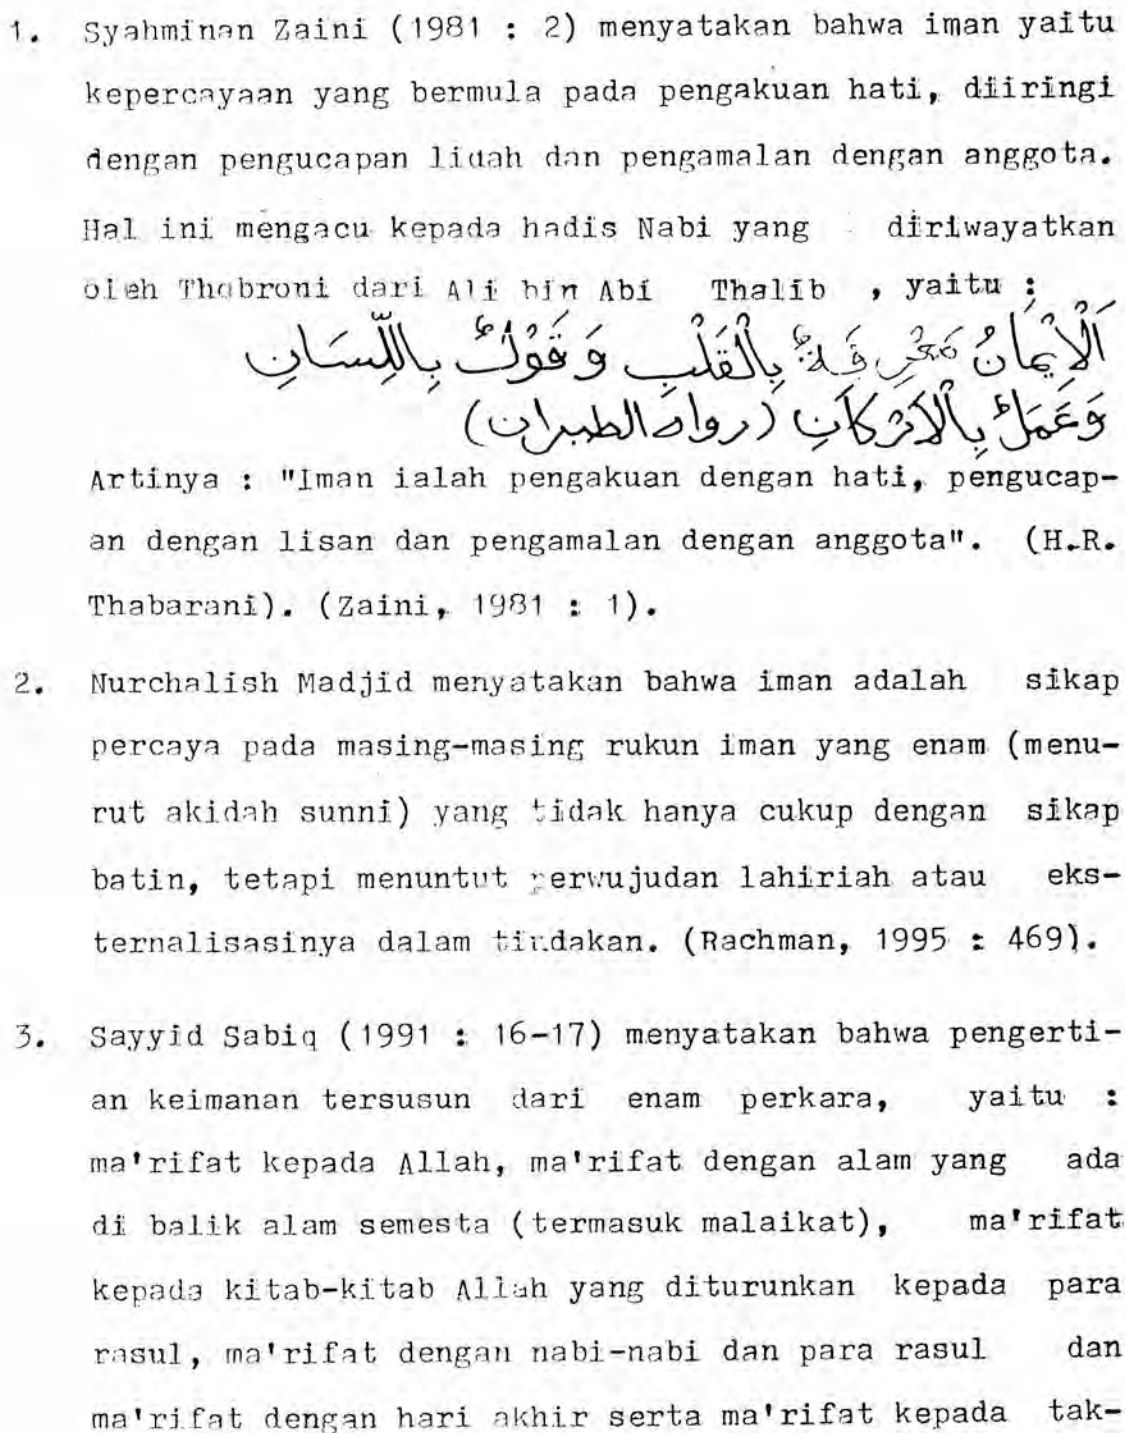 1. Syahminan Zaini (1981 : 2) menyatakan bahwa iman yaitu
kepercayaan yang bermula pada pengakuan hati, diiringi
dengan pengucapan lidah dan pengamalan dengan anggota.
Hal ini mengacu kepada hadis Nabi yang diriwayatkan
oleh Thabroni dari Ali bin Abi Thalib , yaitu :
اَلْاِيْمَانُ مَعْرِفَةٌ بِالْقَلْبِ وَقَوْلٌ بِاللِّسَانِ
وَعَمَلٌ بِالْاَرْكَانِ (رواه الطبران)
Artinya : "Iman ialah pengakuan dengan hati, pengucap-
an dengan lisan dan pengamalan dengan anggota". (H.R.
Thabarani). (Zaini, 1981 : 1).
2. Nurchalish Madjid menyatakan bahwa iman adalah sikap
percaya pada masing-masing rukun iman yang enam (menu-
rut akidah sunni) yang tidak hanya cukup dengan sikap
batin, tetapi menuntut perwujudan lahiriah atau eks-
ternalisasinya dalam tindakan. (Rachman, 1995 : 469).
3. Sayyid Sabiq (1991 : 16-17) menyatakan bahwa pengerti-
an keimanan tersusun dari enam perkara, yaitu :
ma'rifat kepada Allah, ma'rifat dengan alam yang ada
di balik alam semesta (termasuk malaikat), ma'rifat
kepada kitab-kitab Allah yang diturunkan kepada para
rasul, ma'rifat dengan nabi-nabi dan para rasul dan
ma'rifat dengan hari akhir serta ma'rifat kepada tak-